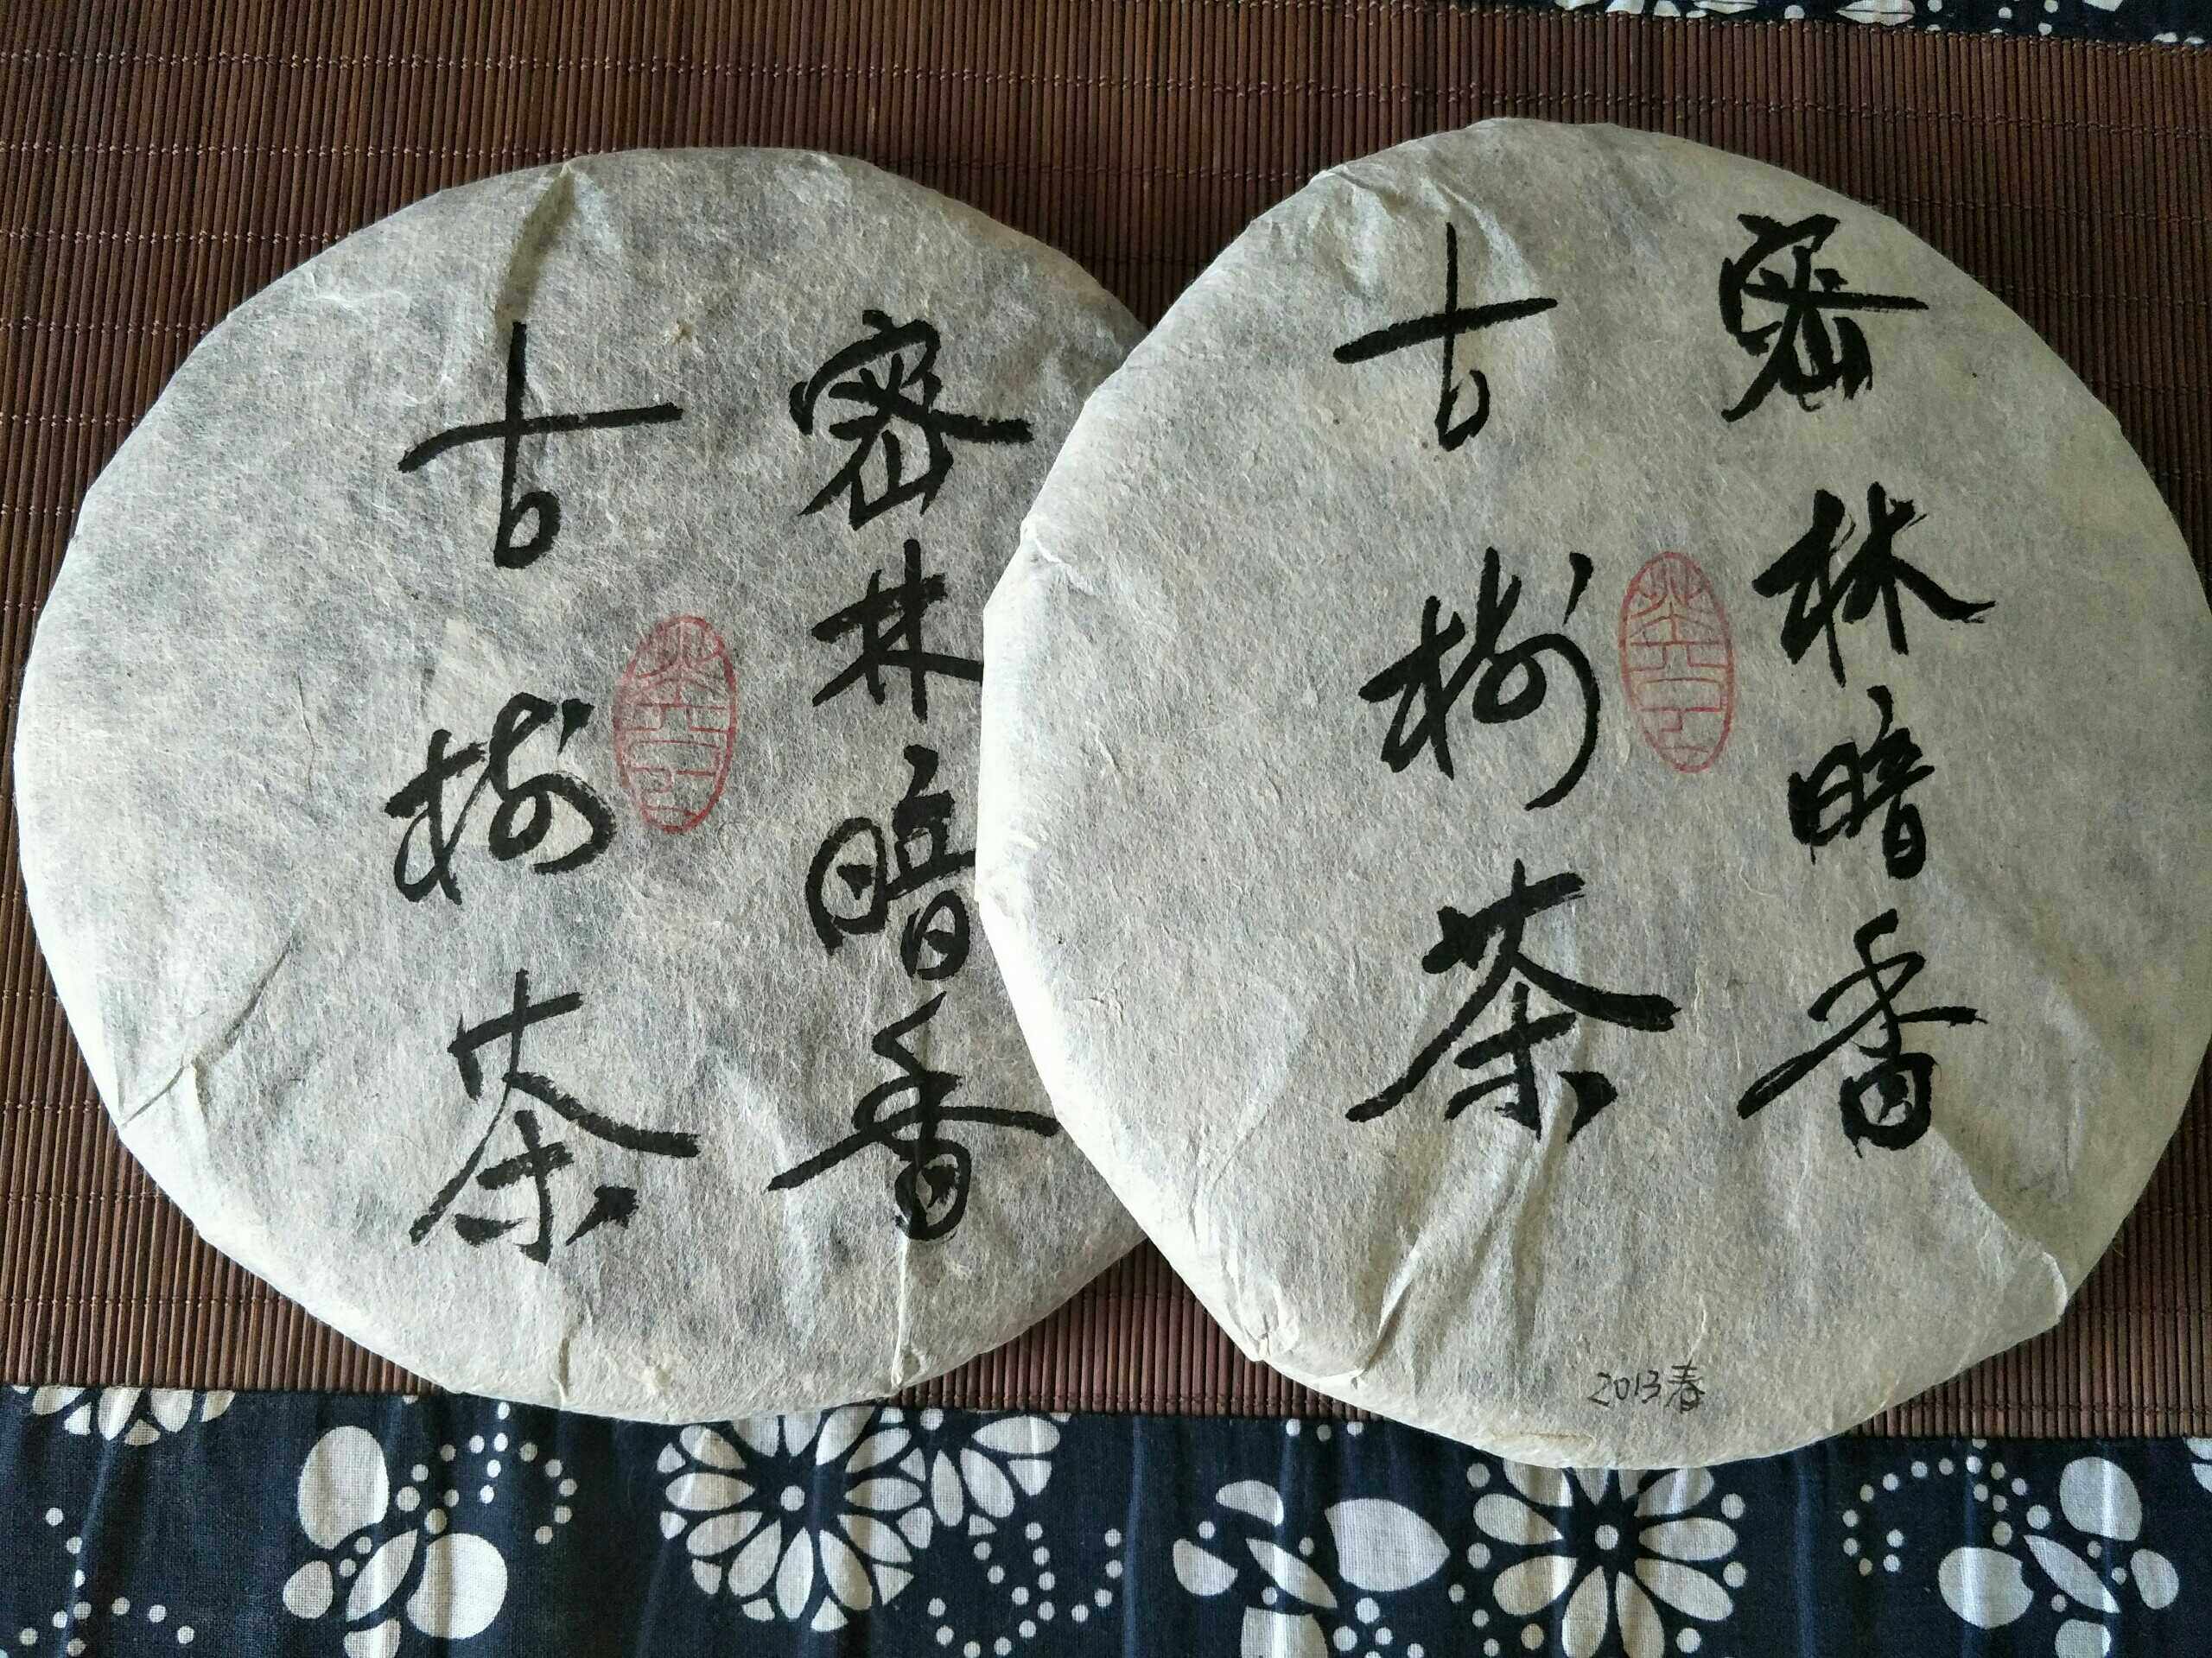 密林暗香
古树茶
密林暗香
古树茶
2013春